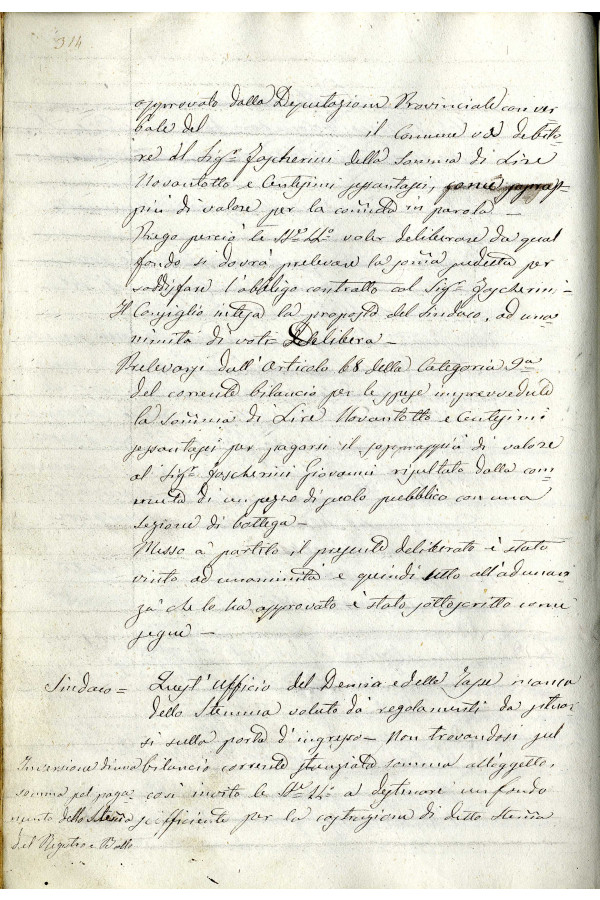 314
approvato dalla Deputazione Provinciale con ver
bale del il Comune va debito
re al Sigr. Foscherini della somma di Lire
Novantotto e Centesimi sessantasei,
più di valore per la commuta in parola —
Prego perciò le SS.e LL.e voler deliberare da qual
fondo si dovrà prelevare la somma predetta per
soddisfare l'obbligo contratto col Sigr. Foscherini —
Il Consiglio intesa la proposta del Sindaco, ad una
nimità di voti Delibera —
Prelevarsi dall'Articolo 68 della Categoria 9a
del corrente bilancio per le spese imprevvedute
la somma di Lire Novantotto e Centesimi
sessantasei per pagarsi il soprappiù di valore
al Sigr. Foscherini Giovanni risultato dalla com=
muta di un pezzo di suolo pubblico con una
sezione di bottega —
Messo a partito il presente deliberato è stato
vinto ad unanimità e quindi letto all'adunan
za che lo ha approvato è stato sottoscritto come
segue —
Sindaco = Quest'Ufficio del Demanio e delle Tasse manca
dello Stemma voluto da regolamenti da situar
si sulla porta d'ingresso — Non trovandosi sul
bilancio corrente stanziata somma all'oggetto,
così invito le SS.e LL.e a destinare un fondo
sufficiente per la costruzione di detto stemma
Inversione di una
somma pel paga=
mento dello stemma
del Registro e Bollo